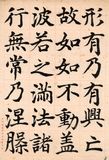 形有乃有興亡
故如如不動蓋
波若之滿法諸
行無常乃涅槃